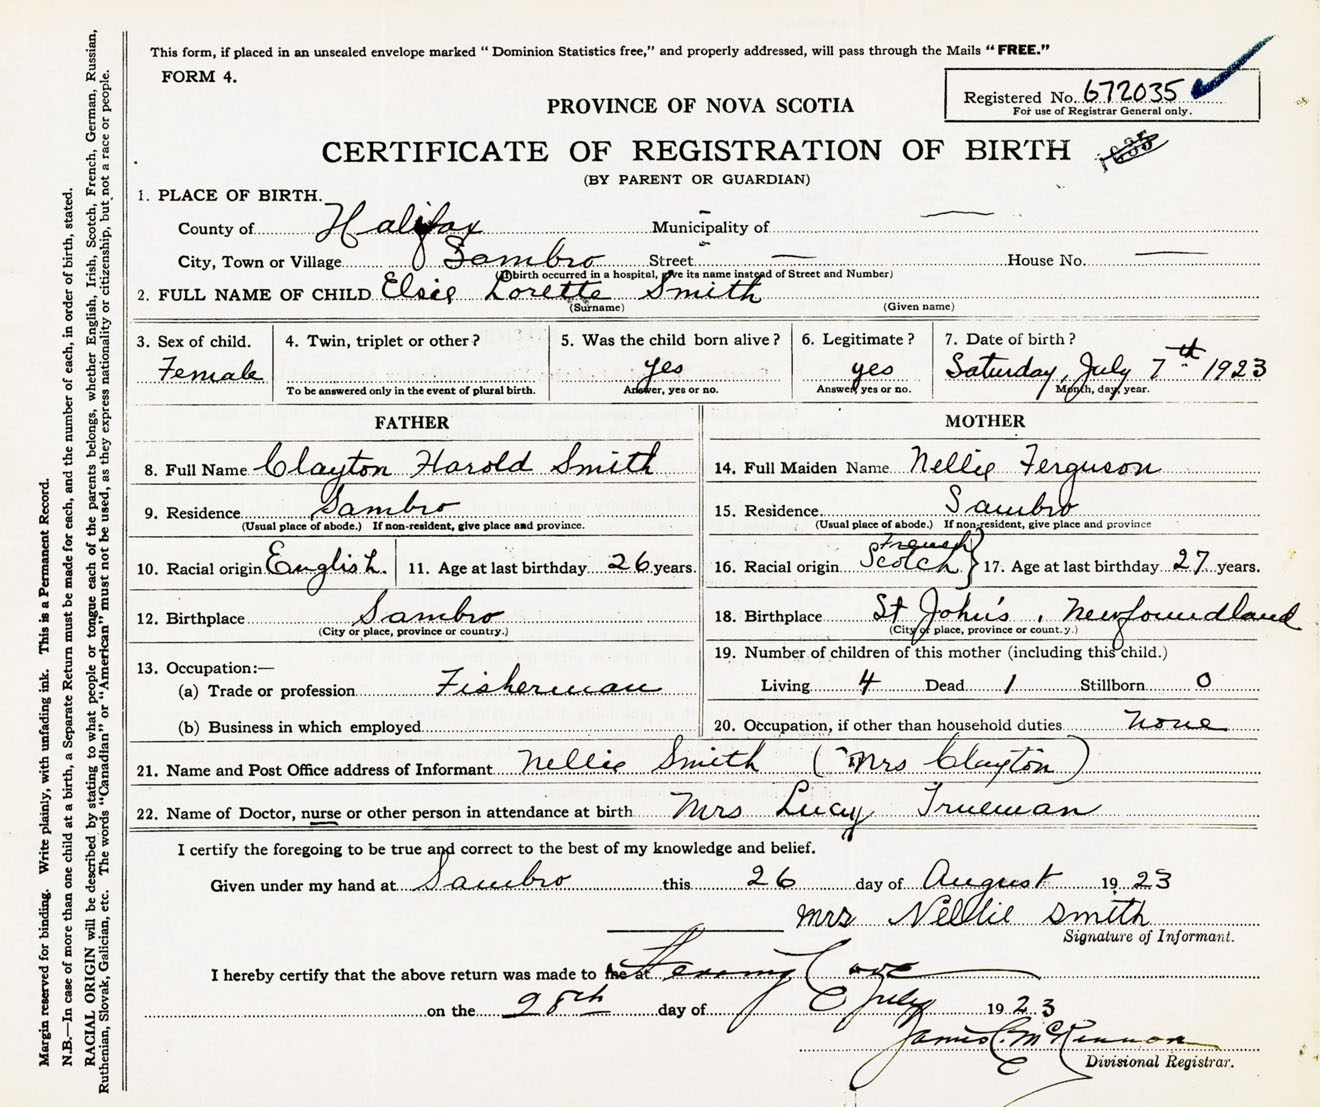 This form, if placed in an unsealed envelope marked " Dominion Statistics free," and properly addressed, will pass through the Mails " FREE."
FORM 4.
Registered No. 672035
For use of Registrar General only.
PROVINCE OF NOVA SCOTIA
CERTIFICATE OF REGISTRATION OF BIRTH
(BY PARENT OR GUARDIAN)
1. PLACE OF BIRTH.
County of Halifax Municipality of
City, Town or Village Sambro Street — House No. —
(If birth occurred in a hospital, give its name instead of Street and Number)
2. FULL NAME OF CHILD Elsie Lorette Smith
(Surname) (Given name)
3. Sex of child. 4. Twin, triplet or other? 5. Was the child born alive? 6. Legitimate? 7. Date of birth?
Female yes yes Saturday, July 7th 1923
To be answered only in the event of plural birth. Answer, yes or no. Answer, yes or no. Month, day, year.
FATHER MOTHER
8. Full Name Clayton Harold Smith 14. Full Maiden Name Nellie Ferguson
9. Residence Sambro 15. Residence Sambro
(Usual place of abode.) If non-resident, give place and province. (Usual place of abode.) If non-resident, give place and province
French
10. Racial origin English. 11. Age at last birthday 26 years. 16. Racial origin Scotch } 17. Age at last birthday 27 years.
12. Birthplace Sambro 18. Birthplace St John's, Newfoundland
(City or place, province or country.) (City or place, province or count.y.)
13. Occupation:— 19. Number of children of this mother (including this child.)
(a) Trade or profession Fisherman Living 4 Dead 1 Stillborn 0
(b) Business in which employed 20. Occupation, if other than household duties none
21. Name and Post Office address of Informant Nellie Smith (Mrs Clayton)
22. Name of Doctor, nurse or other person in attendance at birth Mrs Lucy Trueman
I certify the foregoing to be true and correct to the best of my knowledge and belief.
Given under my hand at Sambro this 26 day of August 1923
Mrs Nellie Smith
Signature of Informant.
I hereby certify that the above return was made to me at Cove
on the 28th day of July 1923
James C. McKinnon
Divisional Registrar.
Margin reserved for binding. Write plainly, with unfading ink. This is a Permanent Record.
N.B.—In case of more than one child at a birth, a Separate Return must be made for each, and the number of each, in order of birth, stated.
RACIAL ORIGIN will be described by stating to what people or tongue each of the parents belongs, whether English, Irish, Scotch, French, German, Russian,
Ruthenian, Slovak, Galician, etc. The words "Canadian" or "American" must not be used, as they express nationality or citizenship, but not a race or people.